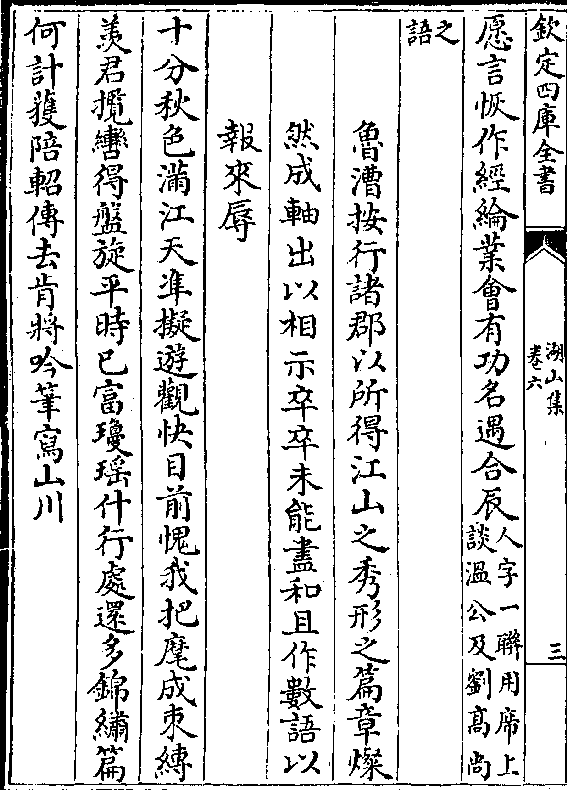 欽定四庫全書
湖山集
卷六
三
愿言恢作經綸業會有功名遇合辰人字一聯用席上
談溫公及劉高尚
之
語
魯漕按行諸郡以所得江山之秀形之篇章燦
然成軸出以相示卒卒未能盡和且作數語以
報來辱
十分秋色滿江天準擬遊觀快目前愧我把麾成束縛
羨君攬轡得盤旋平時已富瓊瑶什行處還多錦繡篇
何計獲陪軺傳去肯將吟筆寫山川